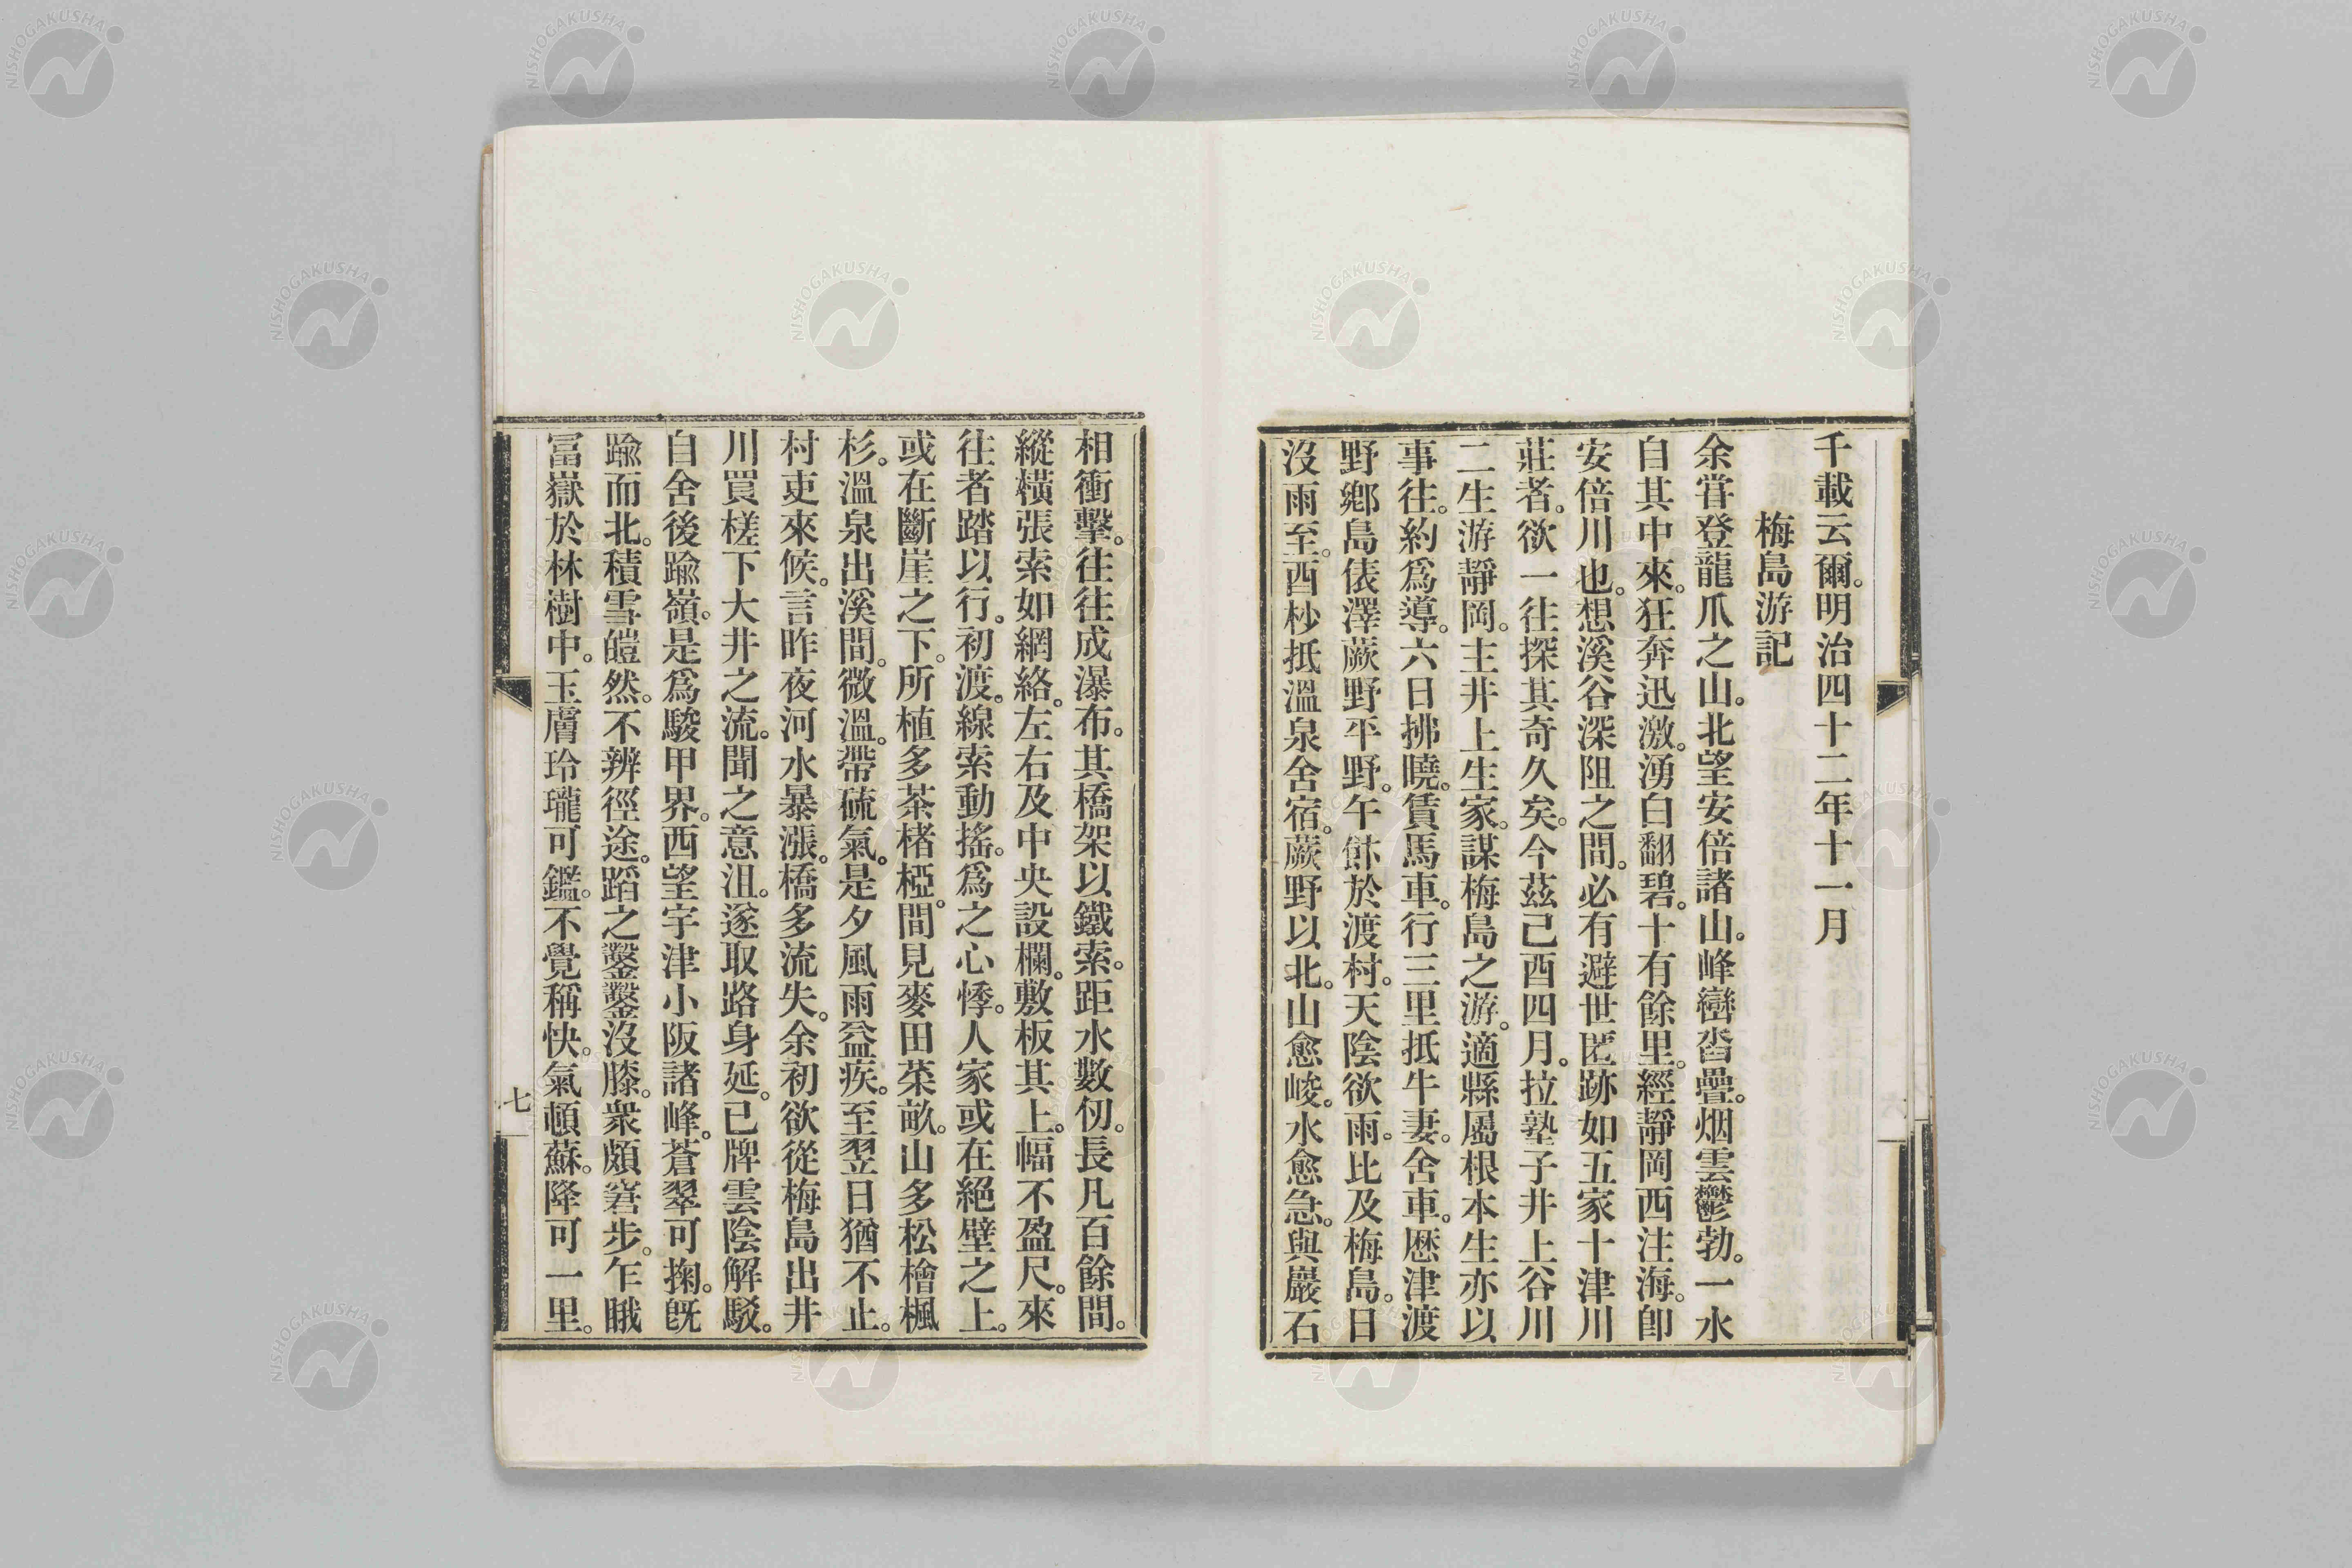 千載云爾。明治四十二年十一月
梅島游記
余嘗登龍爪之山。北望安倍諸山。峰巒沓疊。烟雲鬱勃。一水
自其中來。狂奔迅激。湧白翻碧。十有餘里。經靜岡西注海。卽
安倍川也。想溪谷深阻之間。必有避世匿跡如五家十津川
莊者。欲一往探其奇久矣。今茲己酉四月。拉塾子井上谷川
二生游靜岡。主井上生家。謀梅島之游。適縣屬根本生亦以
事往。約爲導。六日拂曉。賃馬車。行三里抵牛妻。舍車。歷津渡
野鄉島俵澤蕨野平野。午餘於渡村。天陰欲雨。比及梅島。日
沒雨至。酉杪抵溫泉舍宿。蕨野以北。山愈峻。水愈急。與巖石
相衝擊。往往成瀑布。其橋架以鐵索。距水數仞。長凡百餘間。
縱橫張索如網絡。左右及中央設欄。敷板其上。幅不盈尺。來
往者踏以行。初渡。線索動搖。爲之心悸。人家或在絕壁之上。
或在斷崖之下。所植多茶楮椏。間見麥田菜畝。山多松檜楓
杉。溫泉出溪間。微溫。帶硫氣。是夕風雨益疾。至翌日猶不止。
村吏來候。言昨夜河水暴漲。橋多流失。余初欲從梅島出井
川買槎下大井之流。聞之意沮。遂取路身延。已牌雲陰解駁。
自舍後踰嶺。是爲駿甲界。西望宇津小阪諸峰。蒼翠可掬。旣
踰而北。積雪皚然。不辨徑途。蹈之鑿鑿沒膝。衆頗窘步。乍睋
富嶽於林樹中。玉膚玲瓏可鑑。不覺稱快。氣頓蘇。降可一里。
七
NISHOGAKUSHA